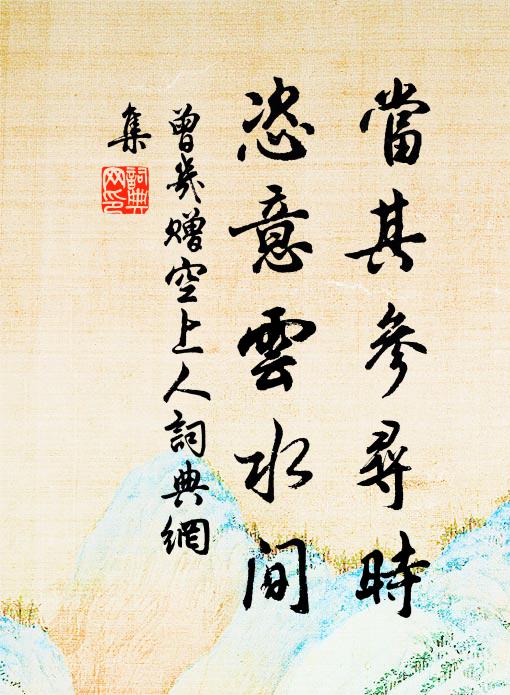 當其參尋時
恣意雲水間
曾幾贈空上人詞典網
集
詞典
网印